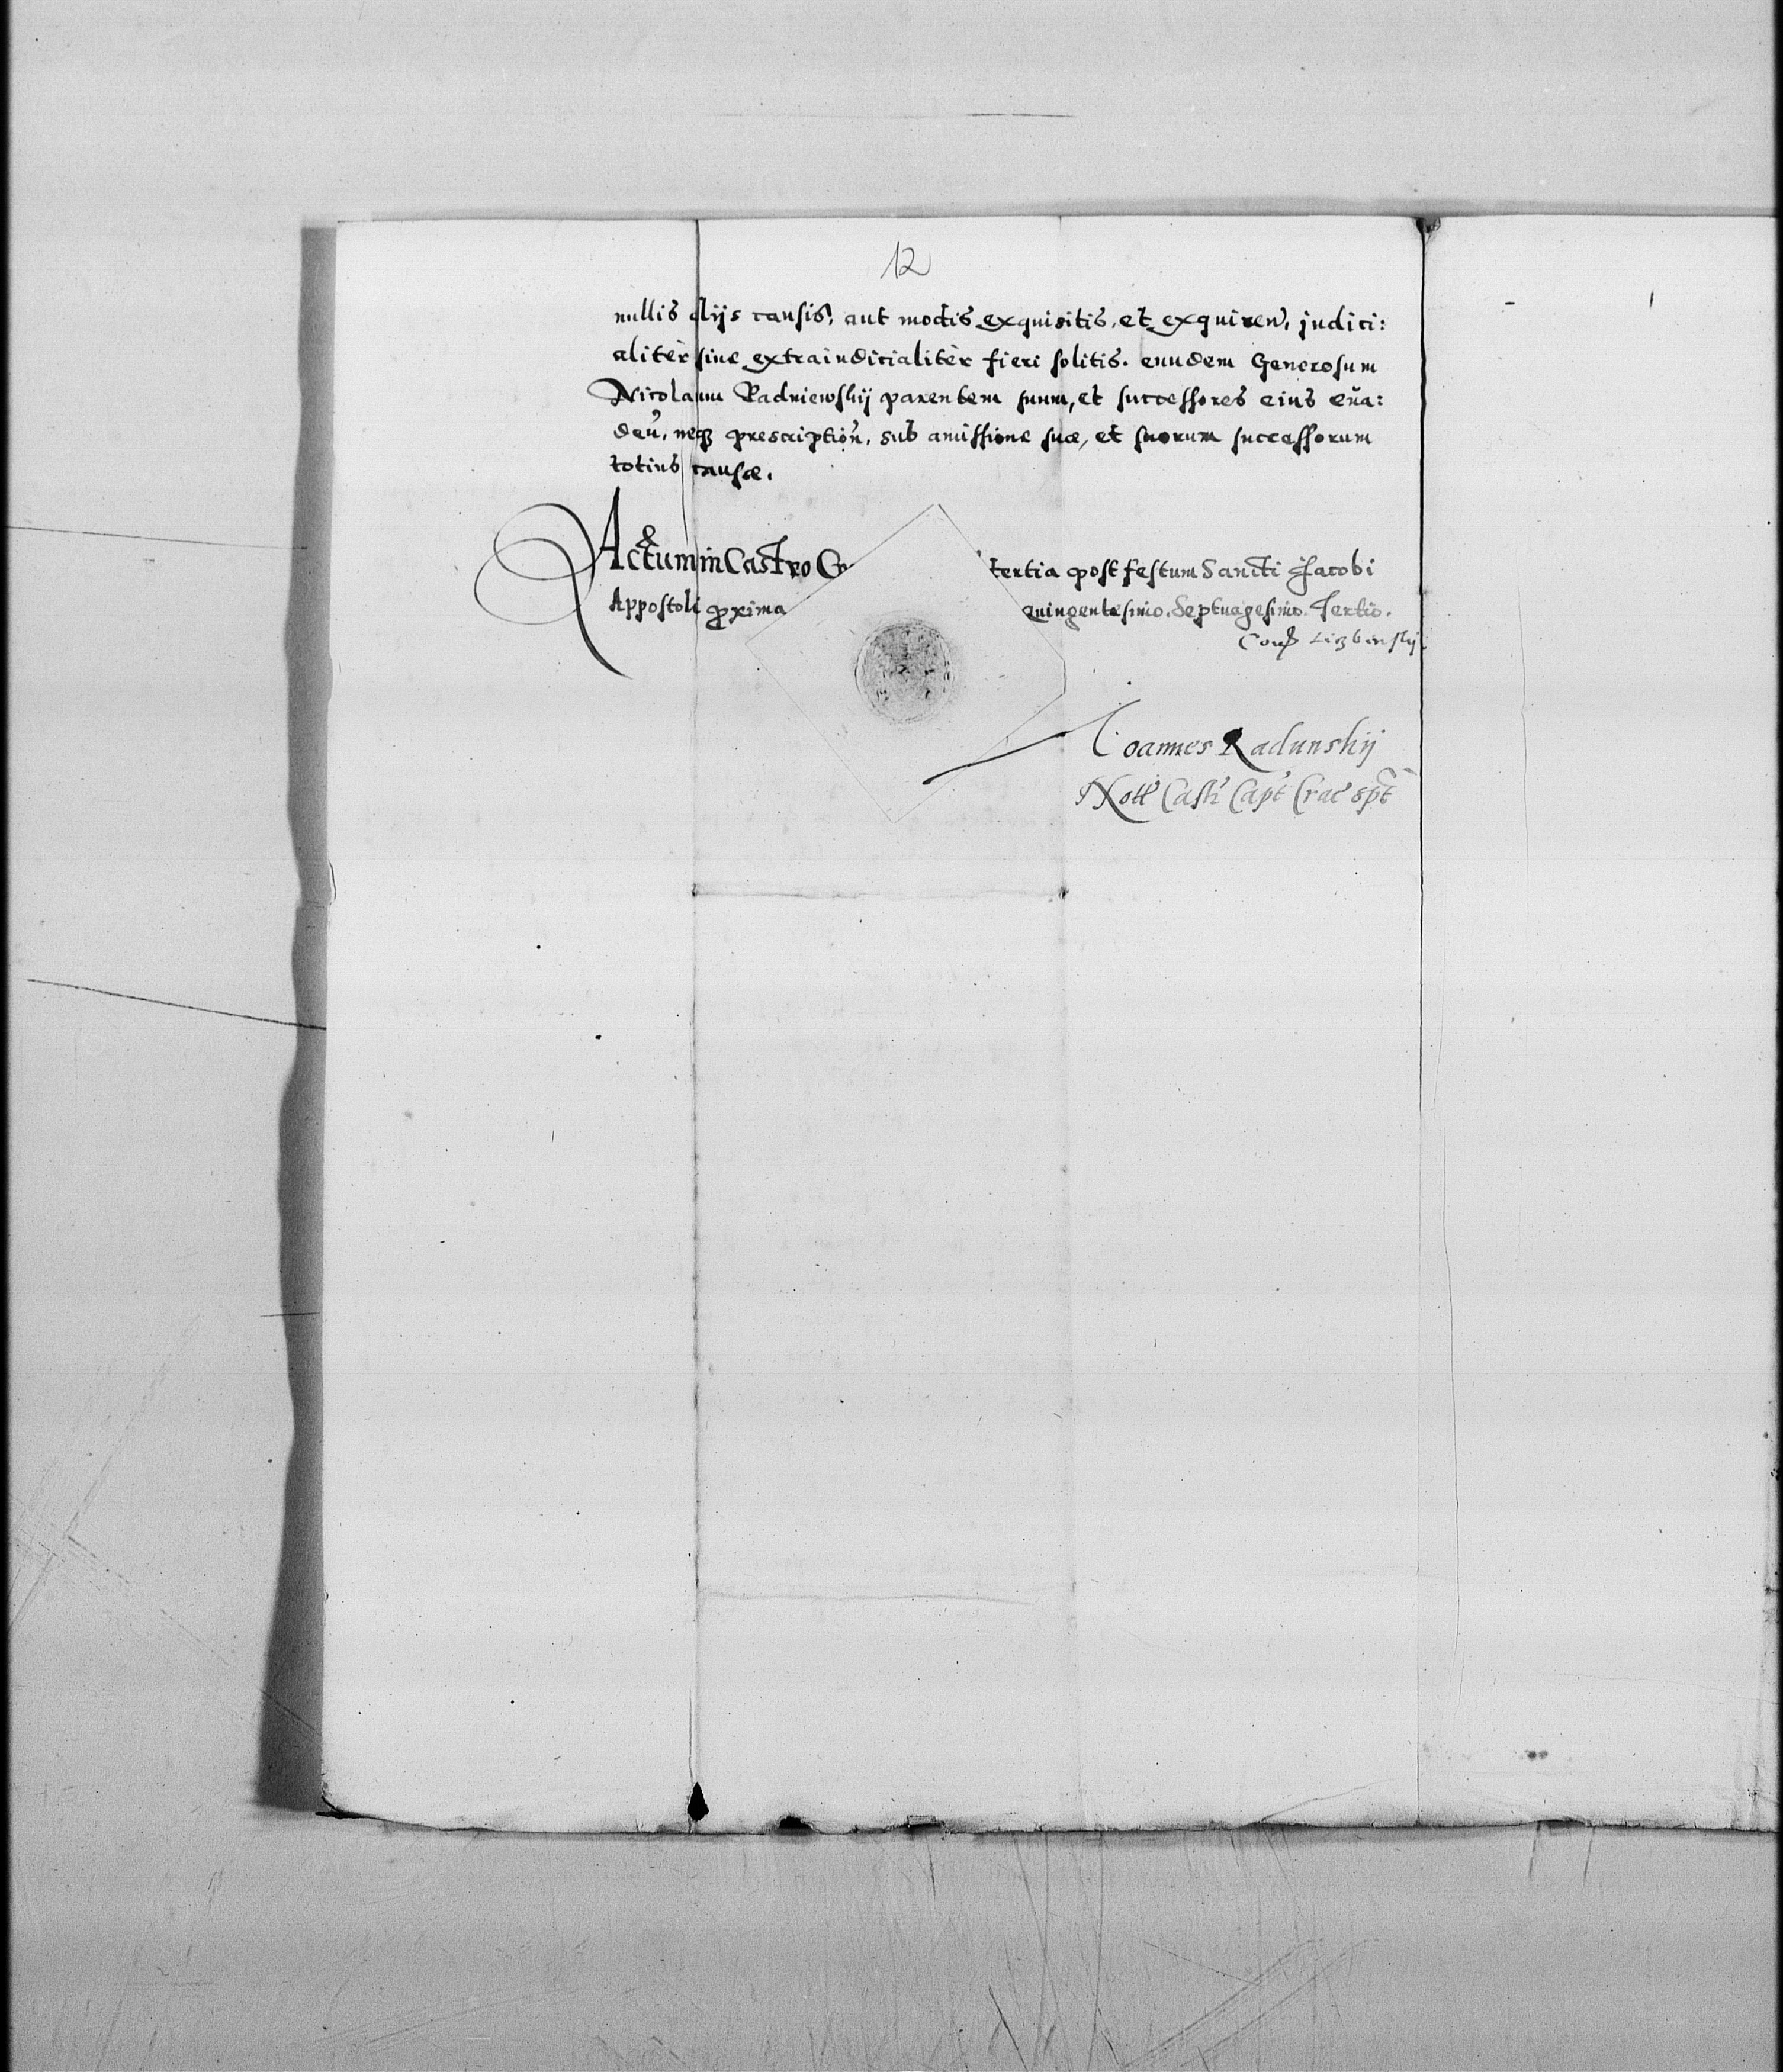 12
nullis alijs causis, aut modis exquisitis, et exquiren̄, judici:
alitèr siue extraiudicialitèr fieri solitis. eundem Generosum
Nicolaum Radniewskij parentem suum, et successores eius eua:
deū, neqȝ prescriptioń, sub amissione suæ, et suorum successorum
totius causæ.
Actum in Castro C tertia post festum Sancti Jacobi
Appostoli proxima quingentesimo. Septuagesimo. Tertio.
Ioannes Radunskij
Nott Castr Capt Crac spt